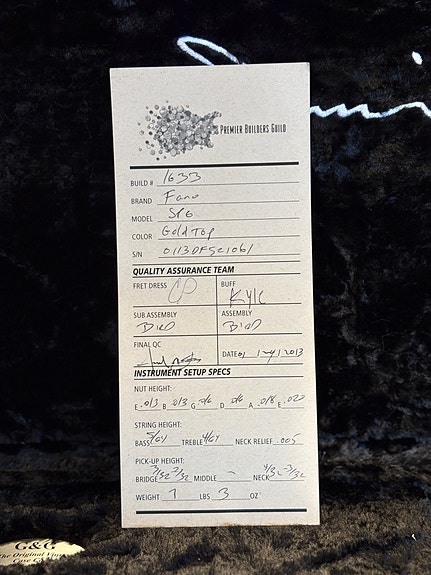 PREMIER BUILDERS GUILD
BUILD # 1633
BRAND Fano
MODEL SP6
COLOR Gold Top
S/N
QUALITY ASSURANCE TEAM
FRET DRESS CP BUFF Kyle
SUB ASSEMBLY Bird ASSEMBLY Bird
FINAL QC DATE
INSTRUMENT SETUP SPECS
NUT HEIGHT:
E .013 B .013 G .016 D .016 A .018 E .022
STRING HEIGHT:
BASS 5/64 TREBLE 4/64 NECK RELIEF .005
PICK-UP HEIGHT:
BRIDGE MIDDLE - NECK
WEIGHT 7 LBS 3 OZ
G&G
The Original Vin
Case C